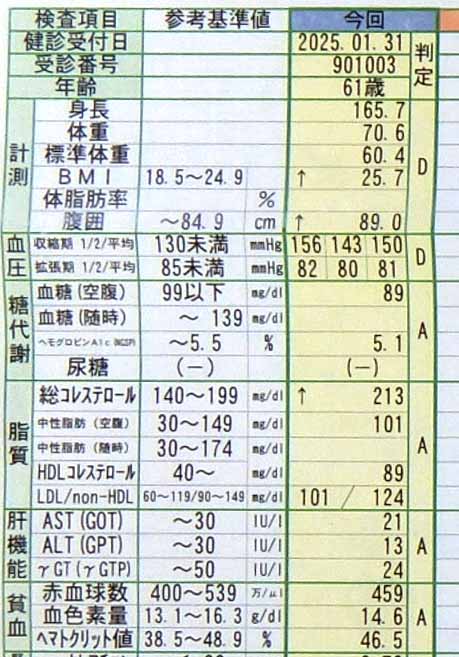 検査項目 参考基準値 今回
健診受付日 2025.01.31 判定
受診番号 901003
年齢 61歳
計測 身長 165.7 D
体重 70.6
標準体重 60.4
BMI 18.5～24.9 ↑ 25.7
体脂肪率 %
腹囲 ～84.9 cm ↑ 89.0
血圧 収縮期 1/2/平均 130未満 mmHg 156 143 150 D
拡張期 1/2/平均 85未満 mmHg 82 80 81
糖代謝 血糖(空腹) 99以下 mg/dl 89 A
血糖(随時) ～139 mg/dl
ヘモグロビンA1c(NGSP) ～5.5 % 5.1
尿糖 (－) (－)
脂質 総コレステロール 140～199 mg/dl ↑ 213 A
中性脂肪(空腹) 30～149 mg/dl 101
中性脂肪(随時) 30～174 mg/dl
HDLコレステロール 40～ mg/dl 89
LDL/non-HDL 60～119/90～149 mg/dl 101 / 124
肝機能 AST(GOT) ～30 IU/l 21 A
ALT(GPT) ～30 IU/l 13
γGT(γGTP) ～50 IU/l 24
貧血 赤血球数 400～539 万/μl 459 A
血色素量 13.1～16.3 g/dl 14.6
ヘマトクリット値 38.5～48.9 % 46.5